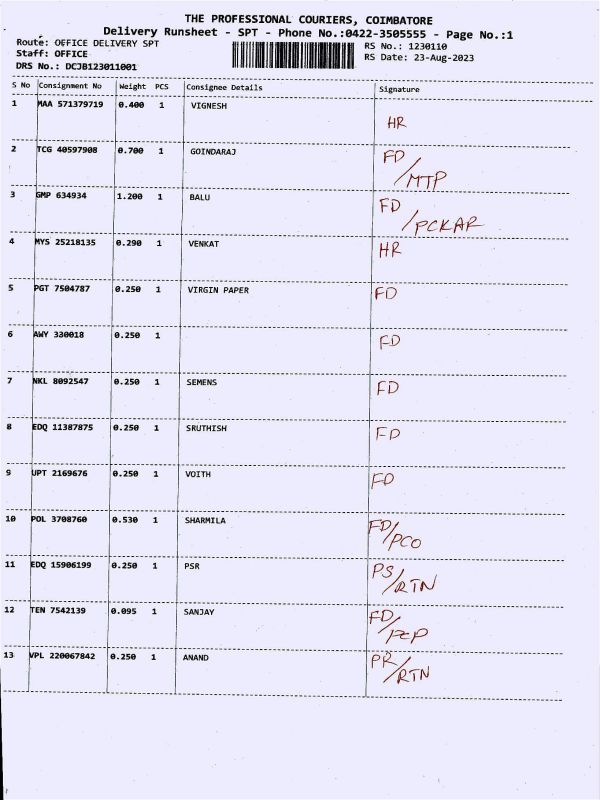 THE PROFESSIONAL COURIERS, COIMBATORE
Delivery Runsheet - SPT - Phone No.:0422-3505555 - Page No.:1
Route: OFFICE DELIVERY SPT
RS No.: 1230110
Staff: OFFICE
RS Date: 23-Aug-2023
DRS No.: DCJB123011001
S No Consignment No Weight PCS Consignee Details Signature
1 MAA 571379719 0.400 1 VIGNESH
HR
2 TCG 40597908 0.700 1 GOINDARAJ FD
/MTP
3 GMP 634934 1.200 1 BALU FD
/PCKAR
4 MYS 25218135 0.290 1 VENKAT HR
5 PGT 7504787 0.250 1 VIRGIN PAPER FD
6 AWY 330018 0.250 1 FD
7 NKL 8092547 0.250 1 SEMENS FD
8 EDQ 11387875 0.250 1 SRUTHISH FD
9 UPT 2169676 0.250 1 VOITH FD
10 POL 3708760 0.530 1 SHARMILA FD
/PCO
11 EDQ 15906199 0.250 1 PSR PS
/RTN
12 TEN 7542139 0.095 1 SANJAY FD
/PCP
13 VPL 220067842 0.250 1 ANAND PR
/RTN